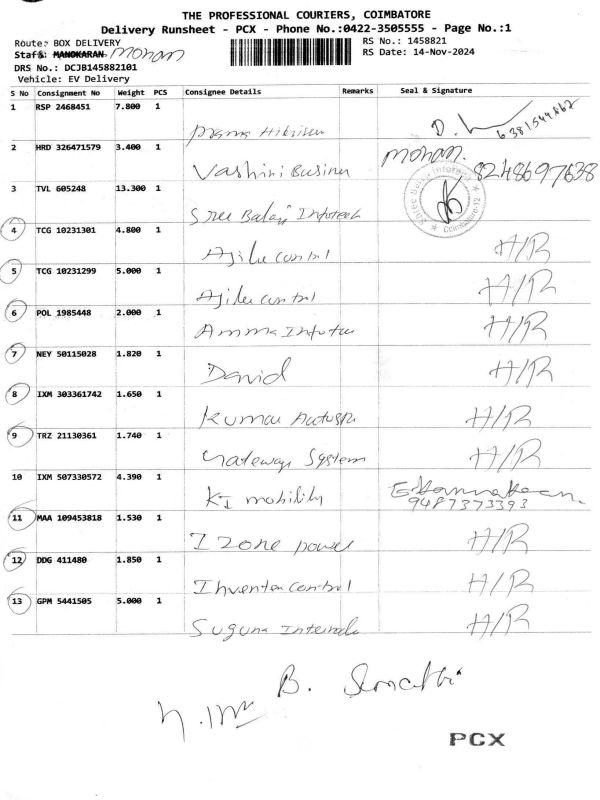 THE PROFESSIONAL COURIERS, COIMBATORE
Delivery Runsheet - PCX - Phone No.:0422-3505555 - Page No.:1
Route: BOX DELIVERY
RS No.: 1458821
Staff: MANOKARAN Mohan
RS Date: 14-Nov-2024
DRS No.: DCJB145882101
Vehicle: EV Delivery
S No Consignment No Weight PCS Consignee Details Remarks Seal & Signature
1 RSP 2468451 7.800 1
2 HRD 326471579 3.400 1 Mohan. 8248697638
Vashini
3 TVL 605248 13.300 1
Sree Balaji Infotech
4 TCG 10231301 4.800 1 H/R
Control
5 TCG 10231299 5.000 1 H/R
Control
6 POL 1985448 2.000 1 H/R
Amma
7 NEY 50115028 1.820 1 H/R
David
8 IXM 303361742 1.650 1 H/R
Kumar
9 TRZ 21130361 1.740 1 H/R
Gateway System
10 IXM 507330572 4.390 1
KI mobility 9487373393
11 MAA 109453818 1.530 1 H/R
I Zone power
12 DDG 411480 1.850 1 H/R
Control
13 GPM 5441505 5.000 1 H/R
Suguna
B.
PCX